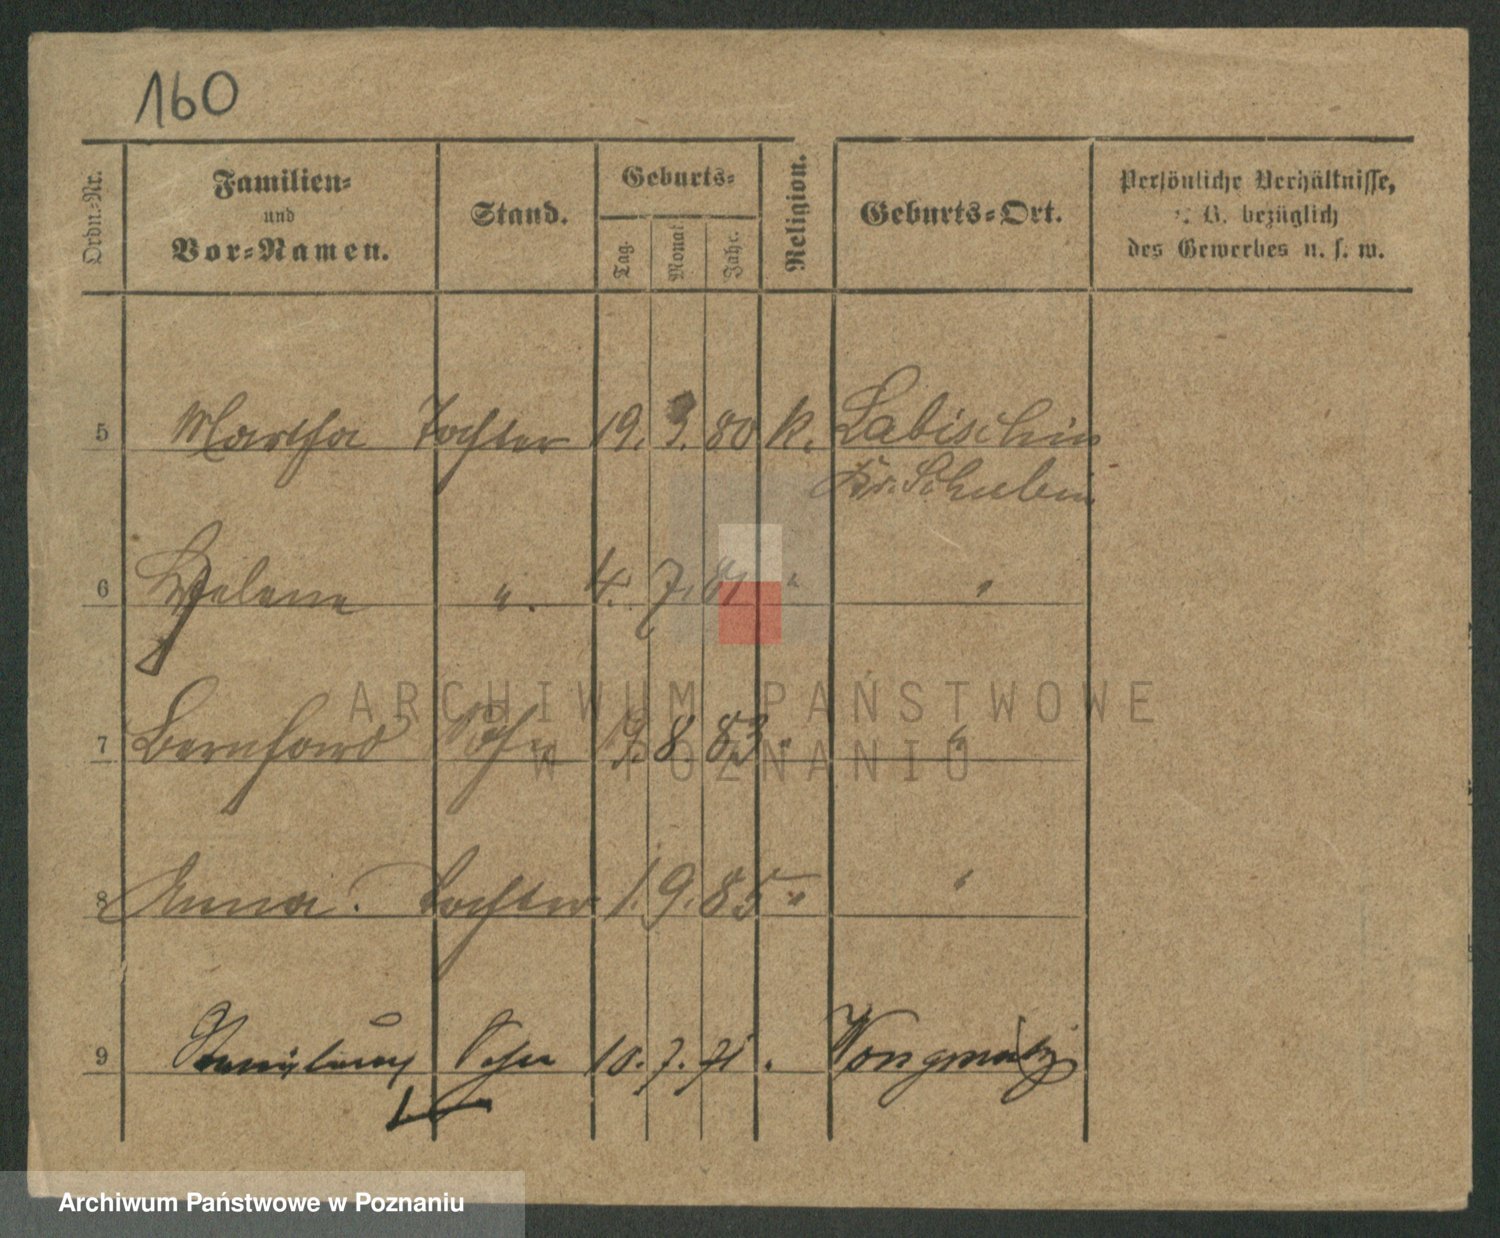 160
Ordn.-Nr.
Familien-
und
Vor-Namen.
Stand.
Geburts-
Tag.
Monat
Jahr.
Religion.
Geburts-Ort.
Persönliche Verhältnisse,
z. B. bezüglich
des Gewerbes u. s. w.
5 Martha Tochter 19. 9. 80 k. Labischin
Kr. Schubin
6 Helene ". 4. 7. 81 " "
7 Bernhard Sohn 19. 8 83 " "
8 Anna. Tochter 1. 9. 85 " "
9 Sohn 10. 7. 71 .
ARCHIWUM PAŃSTWOWE
W POZNANIU
Archiwum Państwowe w Poznaniu